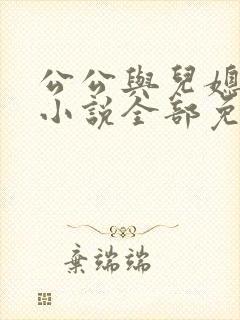 公公與兒媳
小說全部免
棄端端